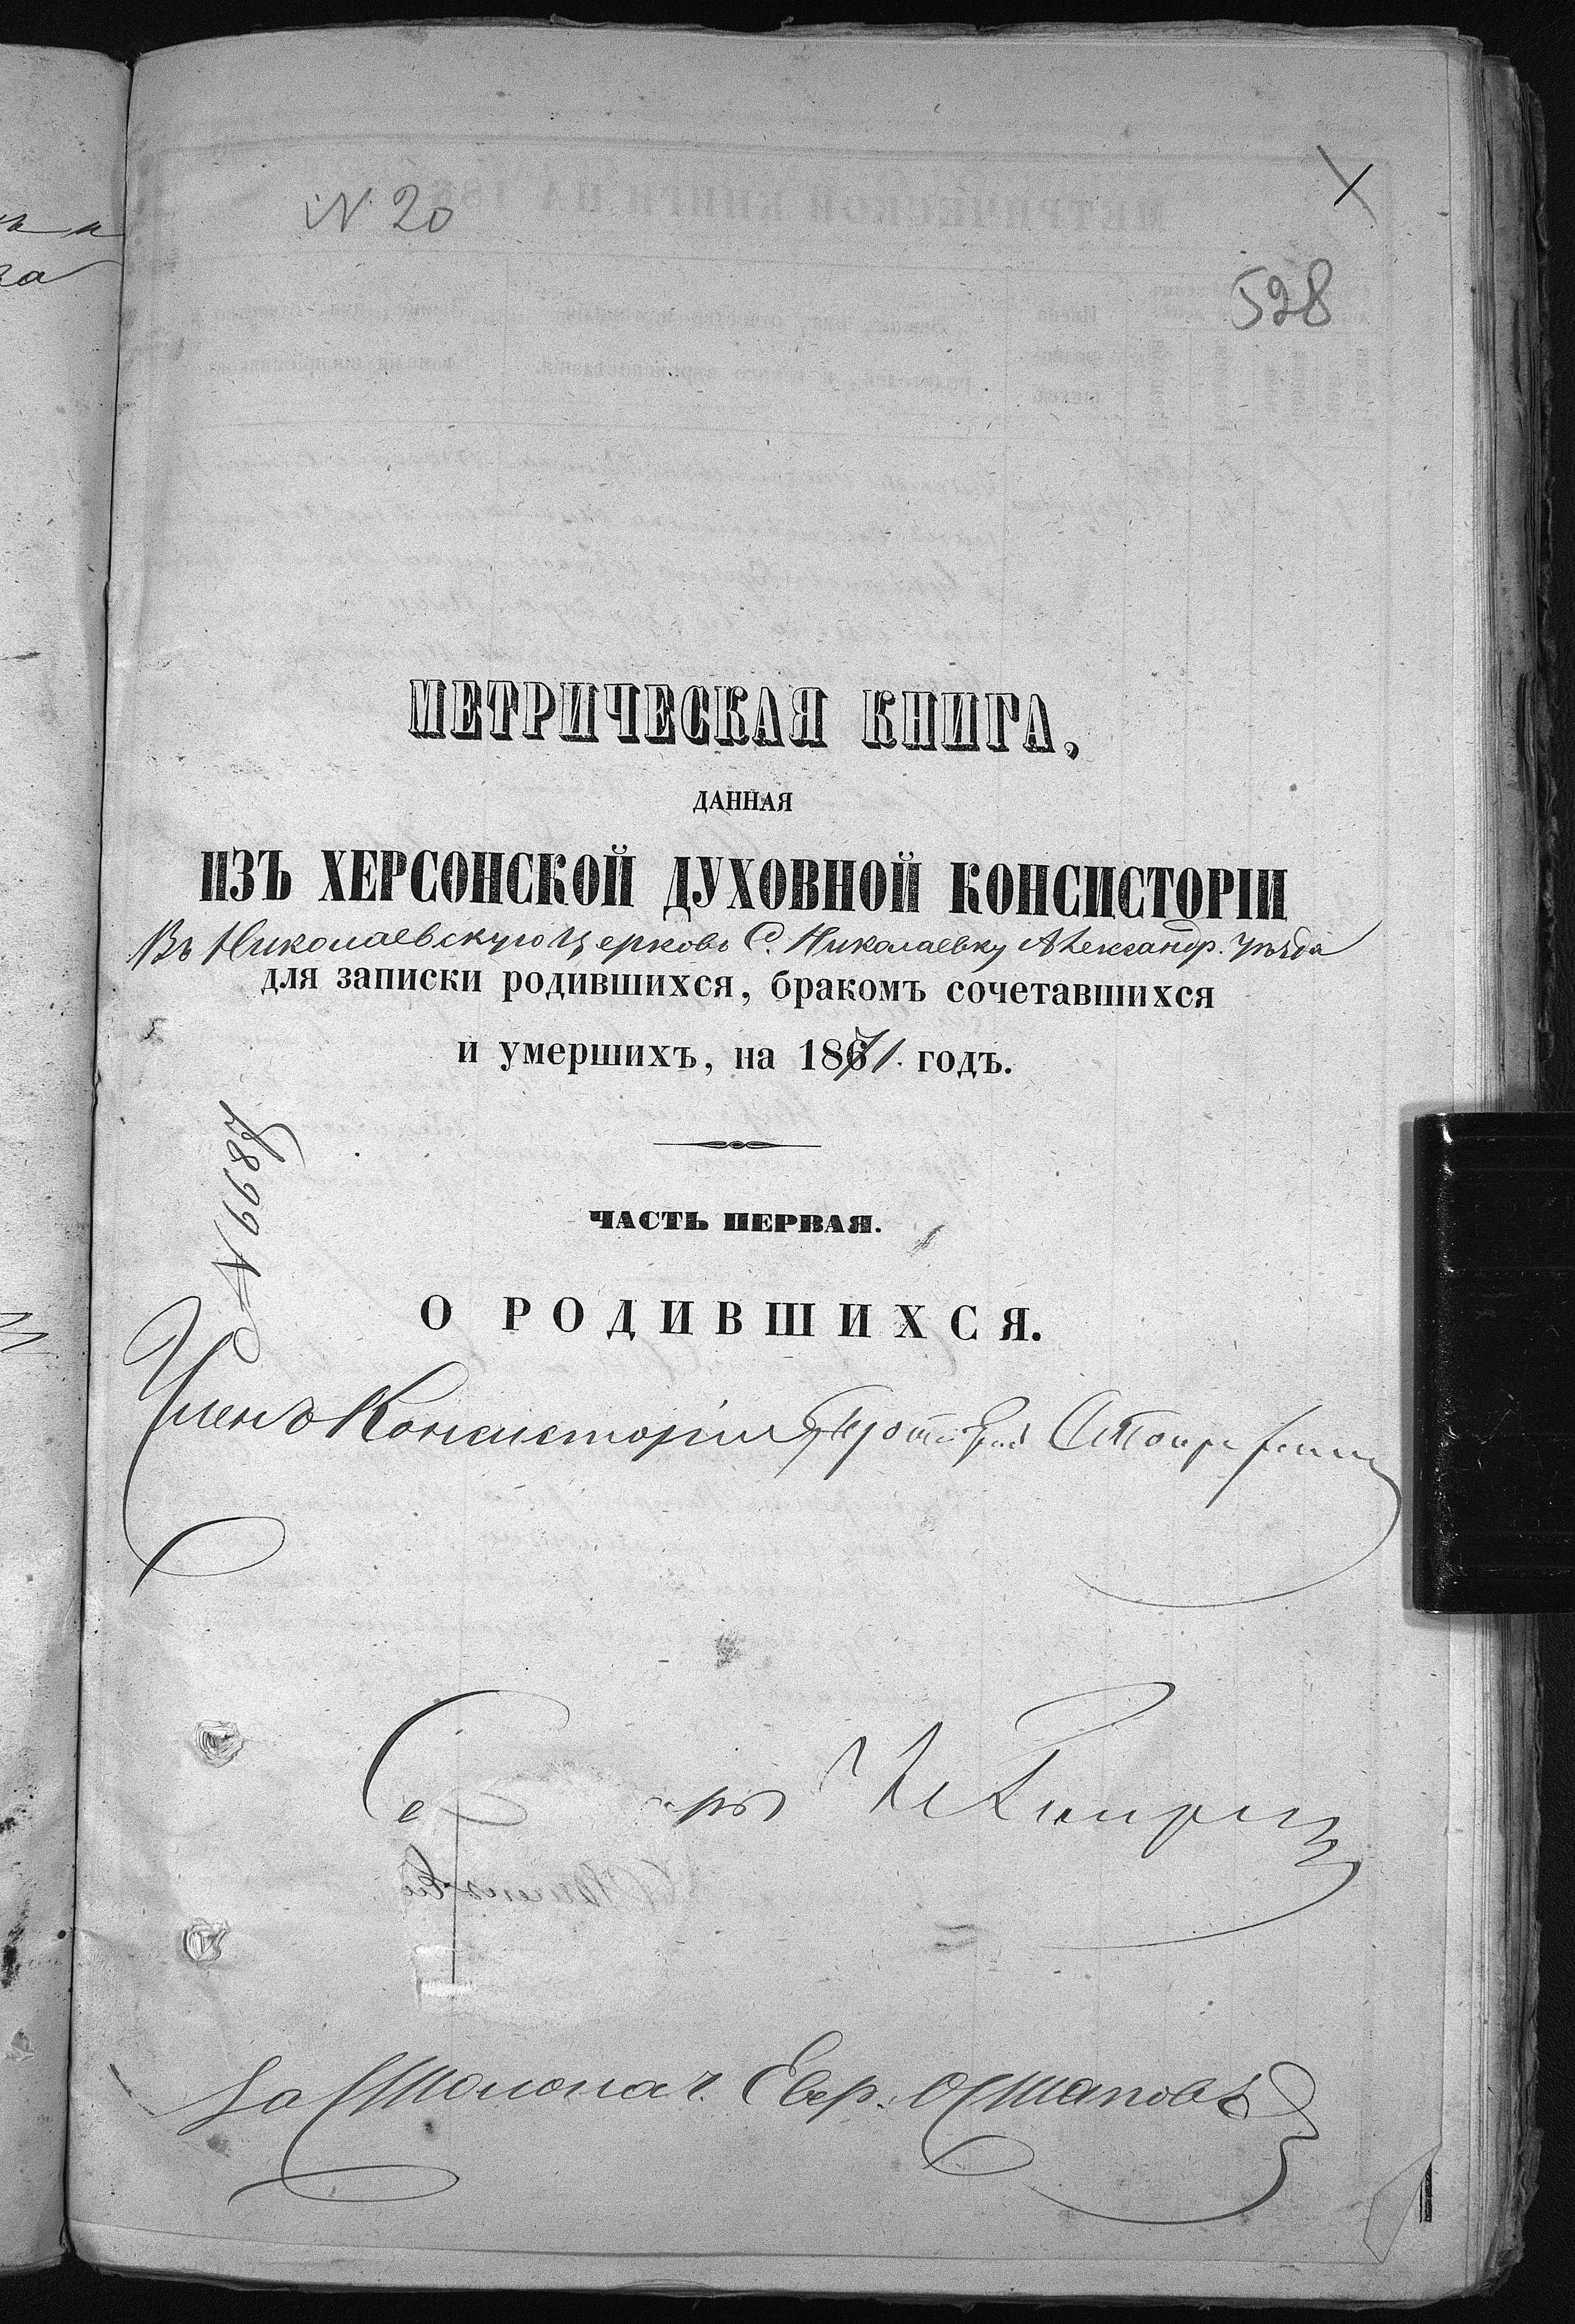 № 20
528
МЕТРИЧЕСКАЯ КНИГА,
ДАННАЯ
ИЗЪ ХЕРСОНСКОЙ ДУХОВНОЙ КОНСИСТОРІИ
Въ Николаевскую Церковь С. Николаевку Александр. уѣзда
для записки родившихся, бракомъ сочетавшихся
и умершихъ, на 1871. годъ.
№ 6687
ЧАСТЬ ПЕРВАЯ.
О РОДИВШИХСЯ.
Членъ Консисторіи Протоіерей
За Столонач. Евгр. Осташовъ